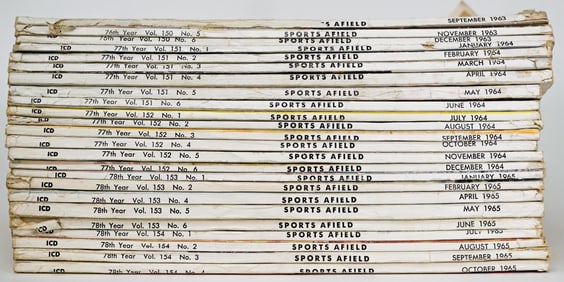 'S AFIELD SEPTEMBER 1963
76th Year Vol. 150 No. 5 SPORTS AFIELD NOVEMBER 1963
76th Year Vol. 150 No. 6 SPORTS AFIELD DECEMBER 1963
ICD 77th Year Vol. 151 No. 1 SPORTS AFIELD JANUARY 1964
ICD 77th Year Vol. 151 No. 2 SPORTS AFIELD FEBRUARY 1964
ICD 77th Year Vol. 151 No. 3 SPORTS AFIELD MARCH 1964
ICD 77th Year Vol. 151 No. 4 SPORTS AFIELD APRIL 1964
ICD 77th Year Vol. 151 No. 5 SPORTS AFIELD MAY 1964
ICD 77th Year Vol. 151 No. 6 SPORTS AFIELD JUNE 1964
ICD 77th Year Vol. 152 No. 1 SPORTS AFIELD JULY 1964
ICD 77th Year Vol. 152 No. 2 SPORTS AFIELD AUGUST 1964
ICD 77th Year Vol. 152 No. 3 SPORTS AFIELD SEPTEMBER 1964
ICD 77th Year Vol. 152 No. 4 SPORTS AFIELD OCTOBER 1964
ICD 77th Year Vol. 152 No. 5 SPORTS AFIELD NOVEMBER 1964
ICD 77th Year Vol. 152 No. 6 SPORTS AFIELD DECEMBER 1964
ICD 78th Year Vol. 153 No. 1 SPORTS AFIELD JANUARY 1965
ICD 78th Year Vol. 153 No. 2 SPORTS AFIELD FEBRUARY 1965
ICD 78th Year Vol. 153 No. 4 SPORTS AFIELD APRIL 1965
ICD 78th Year Vol. 153 No. 5 SPORTS AFIELD MAY 1965
78th Year Vol. 153 No. 6 SPORTS AFIELD JUNE 1965
ICD 78th Year Vol. 154 No. 1 SPORTS AFIELD JULY 1965
ICD 78th Year Vol. 154 No. 2 SPORTS AFIELD AUGUST 1965
ICD 78th Year Vol. 154 No. 3 SPORTS AFIELD SEPTEMBER 1965
ICD 78th Year Vol. 154 No. 4 SPORTS AFIELD OCTOBER 1965